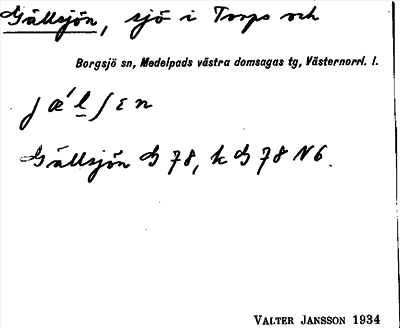 Gällsjön, sjö i Torps och
Borgsjö sn, Medelpads västra domsagas tg, Västernorrl. l.
jæ´lʃɛn
Gällsjön G 78, k G 78 N6.
VALTER JANSSON 1934